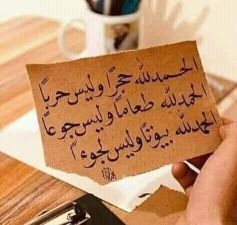 الحمدلله حجرًا وليس حربًا
الحمدلله طعامًا وليس جوعًا
الحمدلله بيوتًا وليس لجوءًا